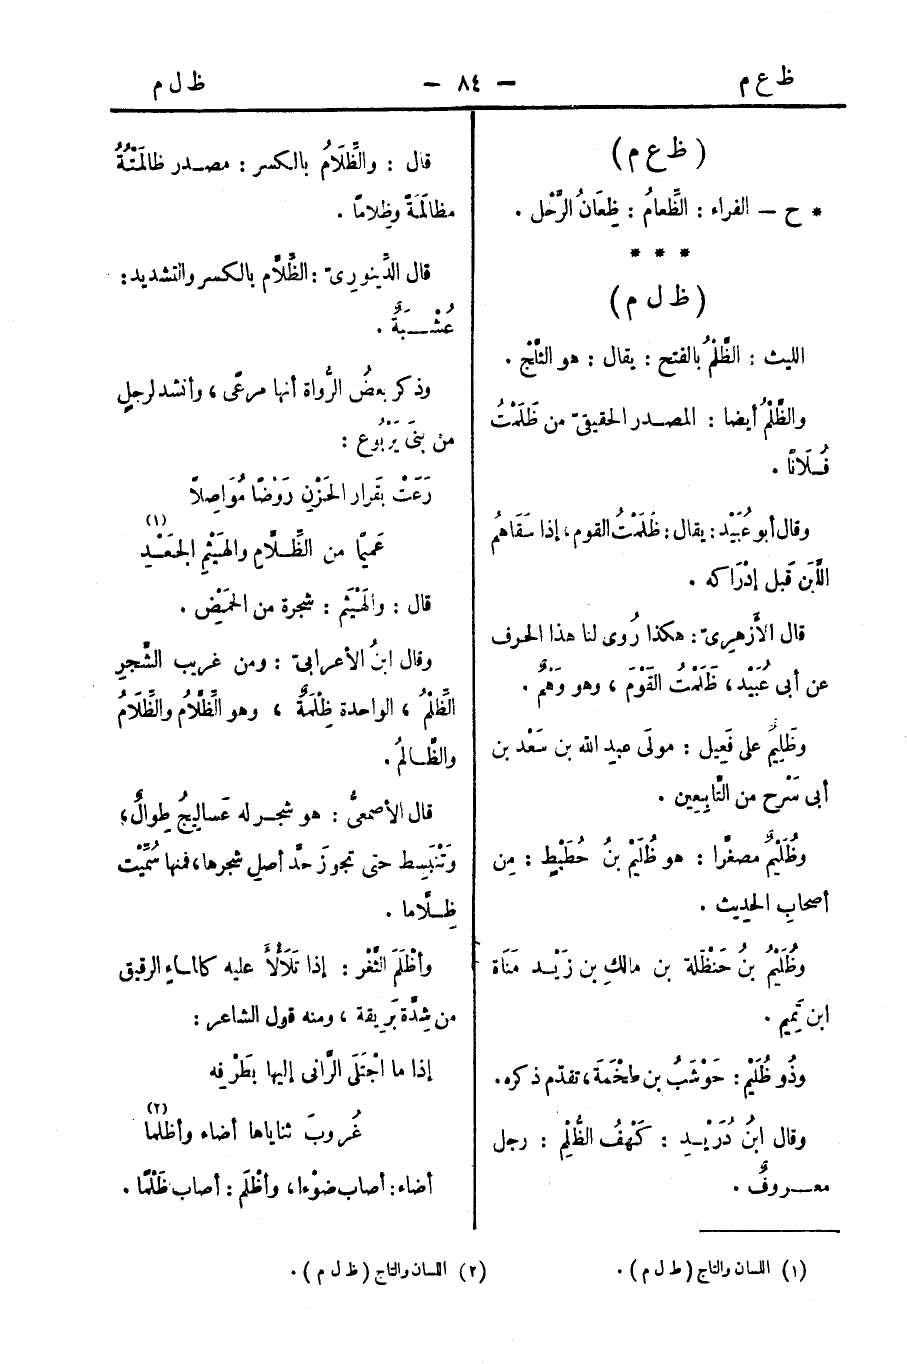 ظ ع م — ٨٤ — ظ ل م
( ظ ع م )
* ح — الفراء : الظِّعامُ : ظِعَانُ الرَّحْل .
* * *
( ظ ل م )
الليث : الظَّلْمُ بالفتح : يقال : هو الثَّلْج .
والظُّلْمُ أيضا : المصدر الحقيقىّ من ظَلَمْتُ
فُلَانًا .
وقال أبو عُبَيْد : يقال : ظَلَمْتُ القوم ، إذا سَقَاهمُ
اللَّبَن قَبل إدْرَاكه .
قال الأَزهرىّ : هكذا رُوى لنا هذا الحرف
عن أبى عُبَيْد ، ظَلَمْتُ القَوْمَ ، وهو وَهْمٌ .
وظَلِيمٌ على فَعِيل : مولَى عبدِ الله بن سَعْد بن
أبى سَرْح من التَّابِعِين .
وظُلَيْمٌ مصغرًا : هو ظُلَيْمُ بنُ حُطَيْطٍ : مِن
أصحابِ الحديث .
وظُلَيْمُ بنُ حَنْظَلة بن مالكِ بن زَيْد مَنَاة
ابن تَمِيم .
وذُو ظُلَيْم : حَوْشَبُ بن طِخْمَة ، تقدّم ذكره .
وقال ابنُ دُرَيْدِ : كَهْفُ الظُّلِمْ : رجل
معروفٌ .
قال : والظِّلَامُ بالكسر : مصدر ظالمَتْهُ
مظالَمَةً وظِلامًا .
قال الدِّينورِىّ : الظِّلَّام بالكسر والتشديد :
عُشْبَةٌ .
وذكر بعضُ الرُّواة أنها مرعًى ، وأنشد لرجلٍ
من بنىَ يَرْبُوع :
رَعَتْ بقَرار الحَزْنِ رَوْضًا مُوَاصِلاً
عَمِيًّا من الظِّلَّامِ والهَيْثمِ الجَعْدِ (١)
قال : والهَيْثَم : شجرة من الحَمْض .
وقال ابنُ الأعرابىّ : ومن غريب الشَّجرِ
الظِّلْمُ ، الواحدة ظِلْمَةٌ ، وهو الظِّلَّامُ والظِّلَامُ
والظَّالمُ .
قال الأصمعىُّ : هو شجر له عَساليجُ طِوالٌ ؛
وتَنْبَسِط حتى تجوزَ حدَّ أصلِ شجرها ، فمنها سُمِّيَت
ظِلَّاما .
وأظْلَمَ الثَّغْر : إذا تَلَأْلأَ عليه كالماءِ الرقيق
من شِدَّة بَرِيقة ، ومنه قول الشاعر :
إذا ما اجْتَلَى الرَّانى إليها بطَرْفِه
غُروبَ ثناياها أضاء وأظلما (٢)
أضاء : أصاب ضوْءا ، وأظْلَم : أصاب ظَلْمًا .
(١) اللسان والتاج ( ظ ل م ) .
(٢) اللسان والتاج ( ظ ل م ) .